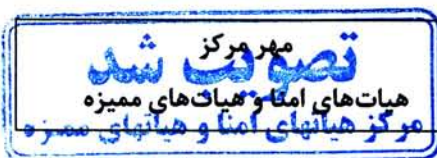 مهر مرکز
تصویب شد
هیات‌های امنا و هیات‌های ممیزه
مرکز هیأتهای امنا و هیأتهای ممیزه